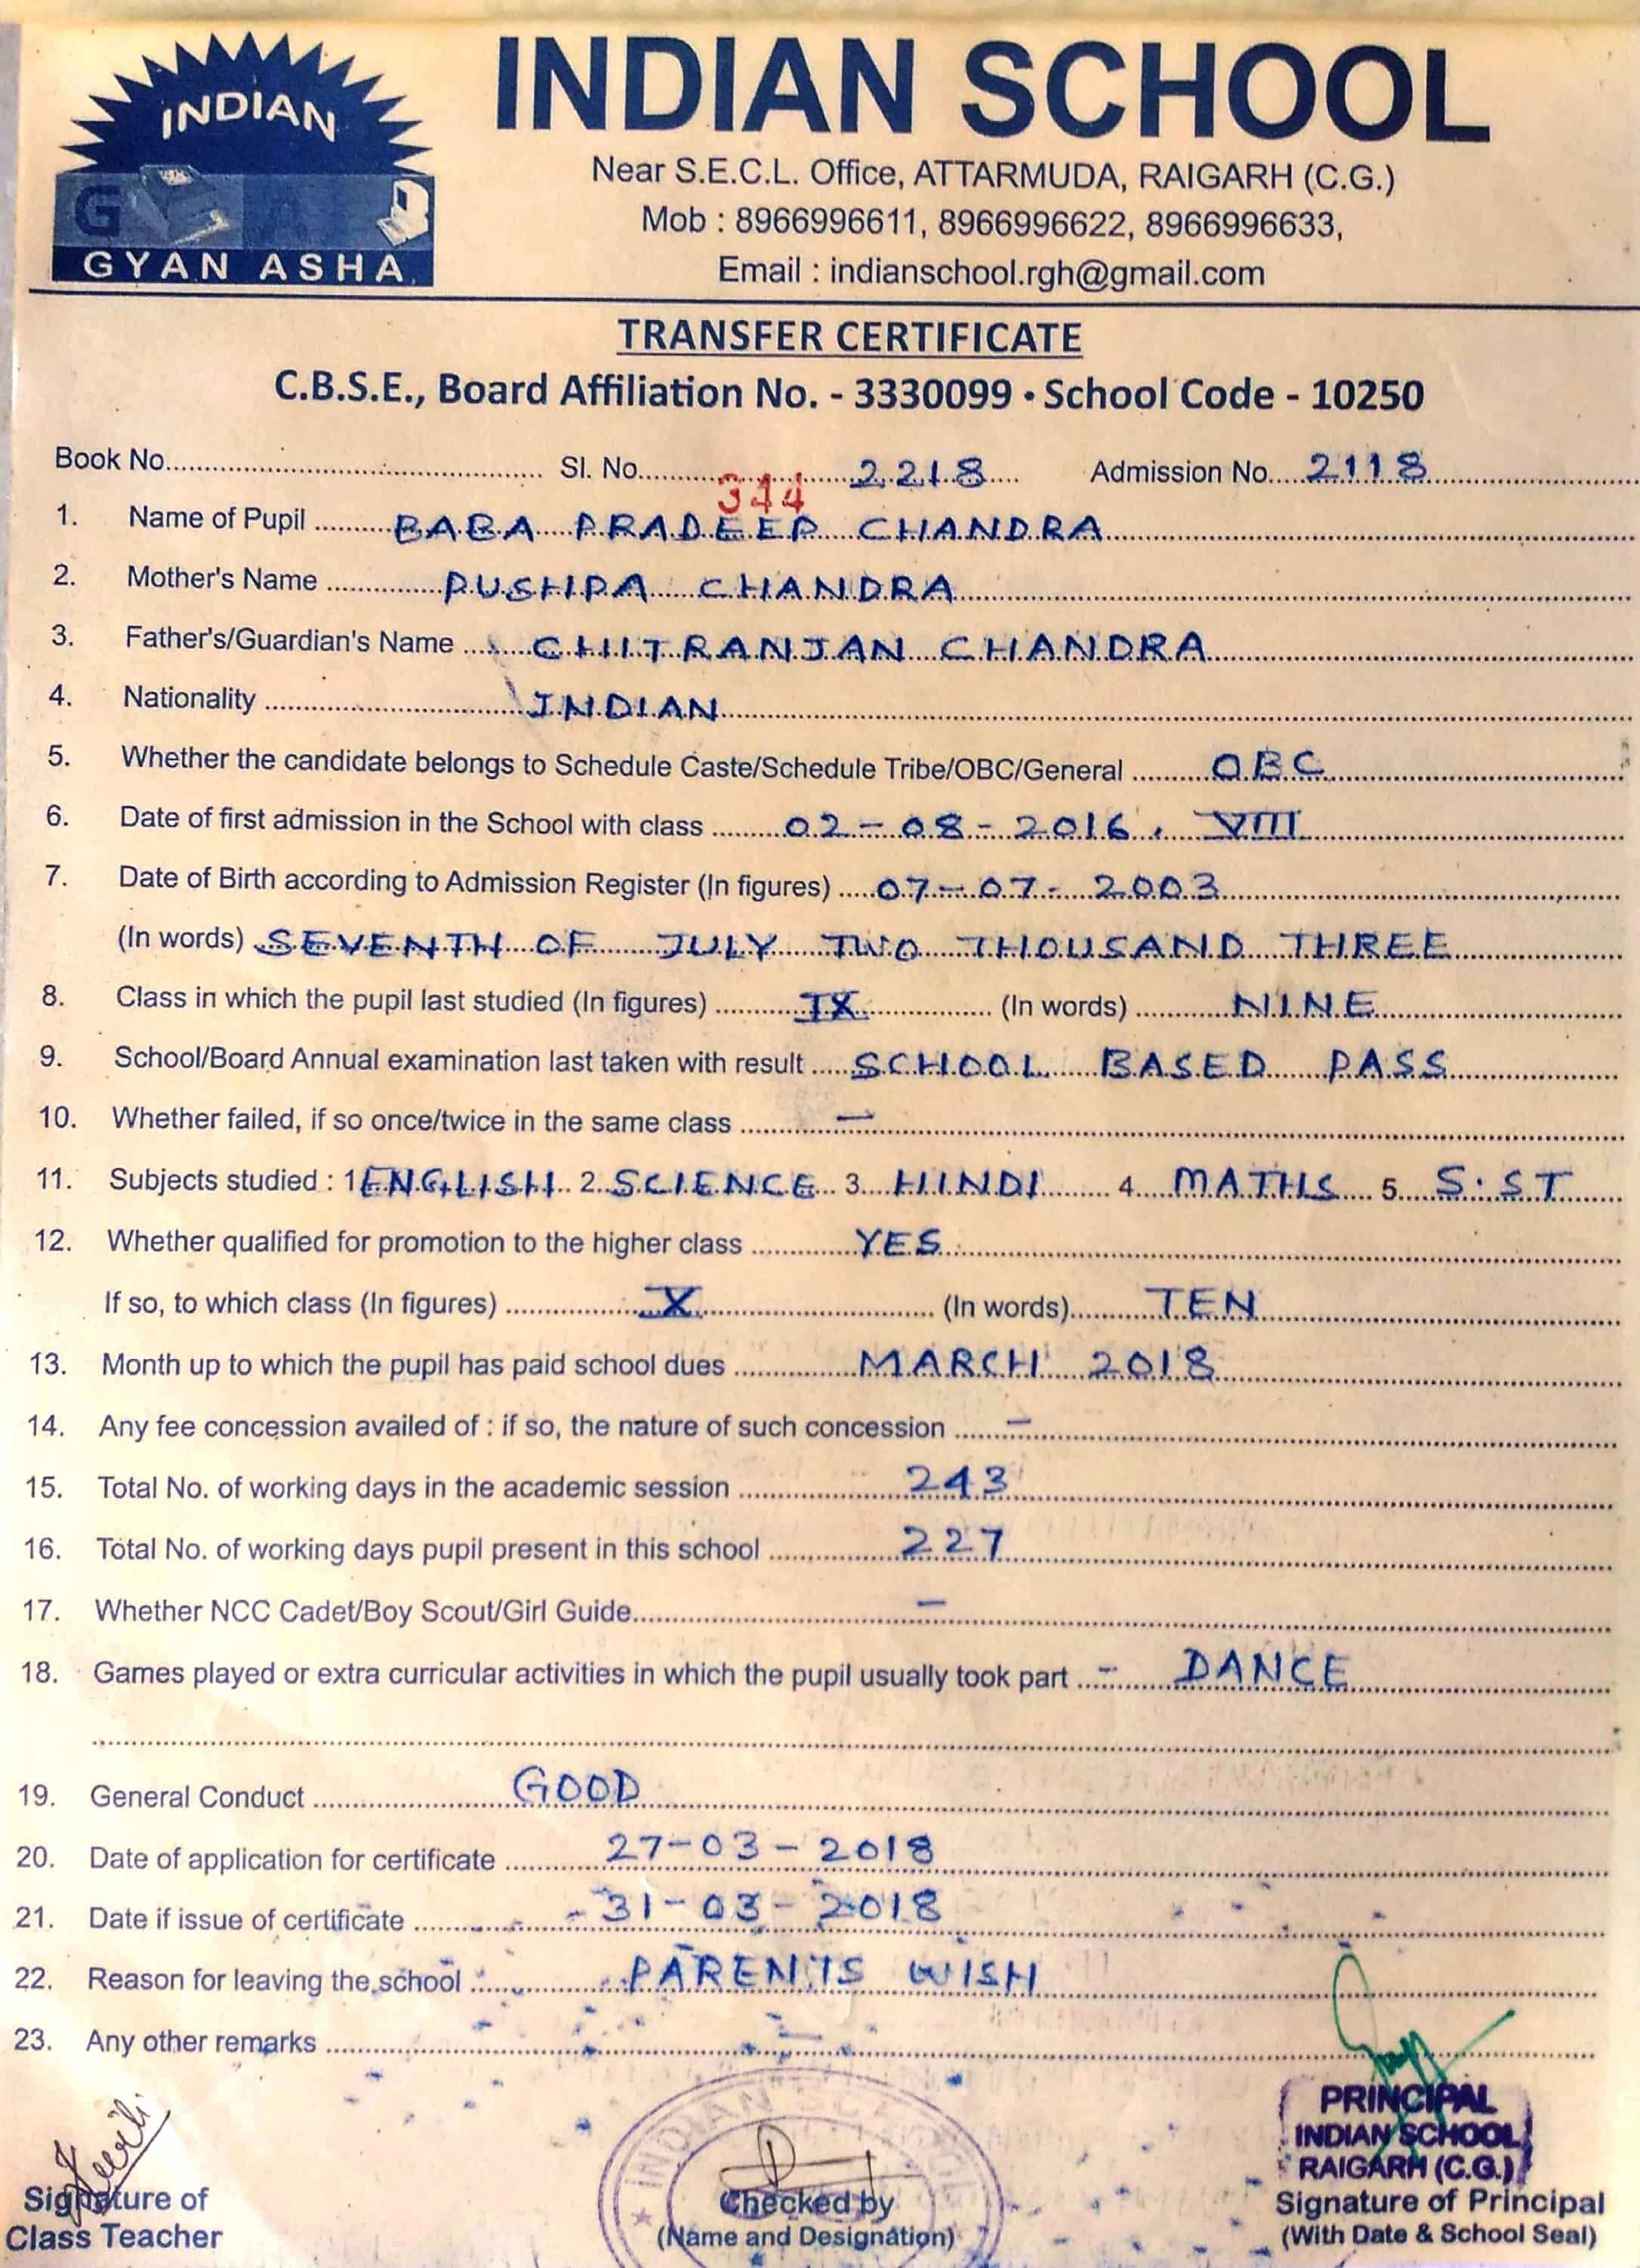 INDIAN
G A
GYAN ASHA
INDIAN SCHOOL
Near S.E.C.L. Office, ATTARMUDA, RAIGARH (C.G.)
Mob : 8966996611, 8966996622, 8966996633,
Email : indianschool.rgh@gmail.com
TRANSFER CERTIFICATE
C.B.S.E., Board Affiliation No. - 3330099 • School Code - 10250
Book No. Sl. No. 344 2218 Admission No. 2118
1. Name of Pupil BABA PRADEEP CHANDRA
2. Mother's Name PUSHPA CHANDRA
3. Father's/Guardian's Name CHITRANJAN CHANDRA
4. Nationality INDIAN
5. Whether the candidate belongs to Schedule Caste/Schedule Tribe/OBC/General OBC
6. Date of first admission in the School with class 02-08-2016, VIII
7. Date of Birth according to Admission Register (In figures) 07-07-2003
(In words) SEVENTH OF JULY TWO THOUSAND THREE
8. Class in which the pupil last studied (In figures) IX (In words) NINE
9. School/Board Annual examination last taken with result SCHOOL BASED PASS
10. Whether failed, if so once/twice in the same class —
11. Subjects studied : 1 ENGLISH 2. SCIENCE 3. HINDI 4. MATHS 5. S.ST
12. Whether qualified for promotion to the higher class YES
If so, to which class (In figures) X (In words) TEN
13. Month up to which the pupil has paid school dues MARCH 2018
14. Any fee concession availed of : if so, the nature of such concession —
15. Total No. of working days in the academic session 243
16. Total No. of working days pupil present in this school 227
17. Whether NCC Cadet/Boy Scout/Girl Guide —
18. Games played or extra curricular activities in which the pupil usually took part - DANCE
19. General Conduct GOOD
20. Date of application for certificate 27-03-2018
21. Date if issue of certificate 31-03-2018
22. Reason for leaving the school PARENTS WISH
23. Any other remarks —
INDIAN SCHOOL
PRINCIPAL
INDIAN SCHOOL
RAIGARH (C.G.)
Signature of Class Teacher
Checked by
(Name and Designation)
Signature of Principal
(With Date & School Seal)